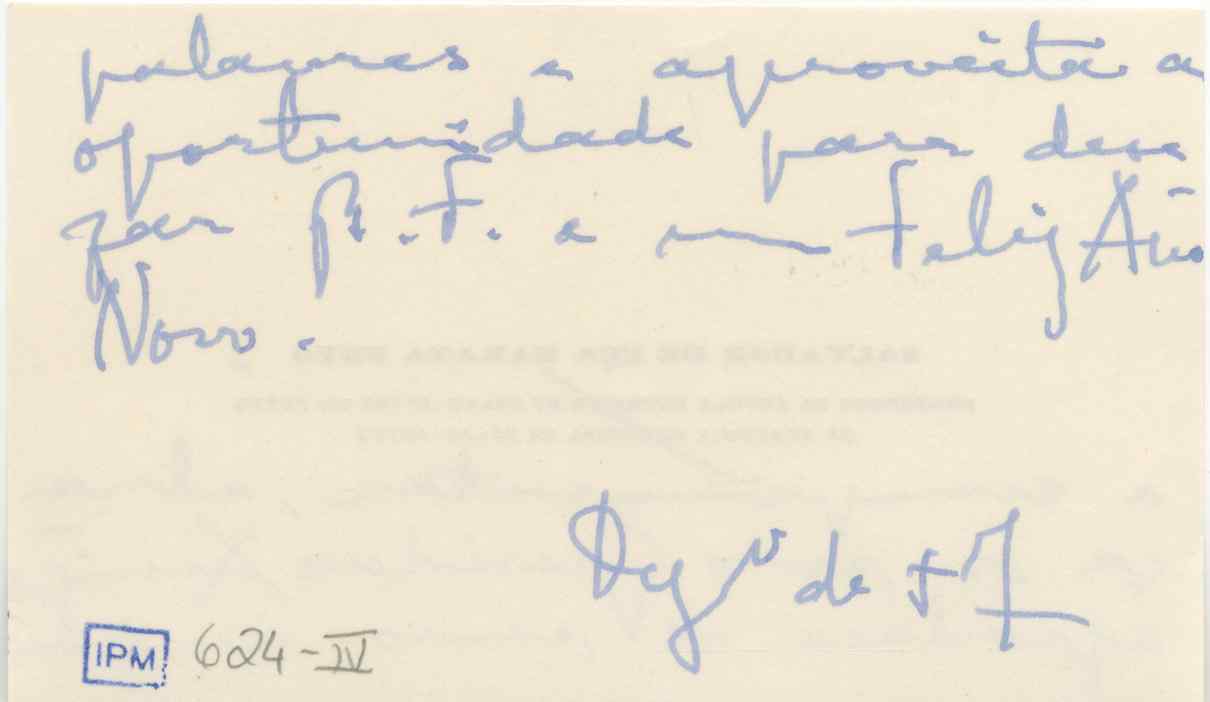 palavras e aproveita a
oportunidade para dese
jar B. F. e um Feliz Ano
Novo.
de
IPM 624-IV